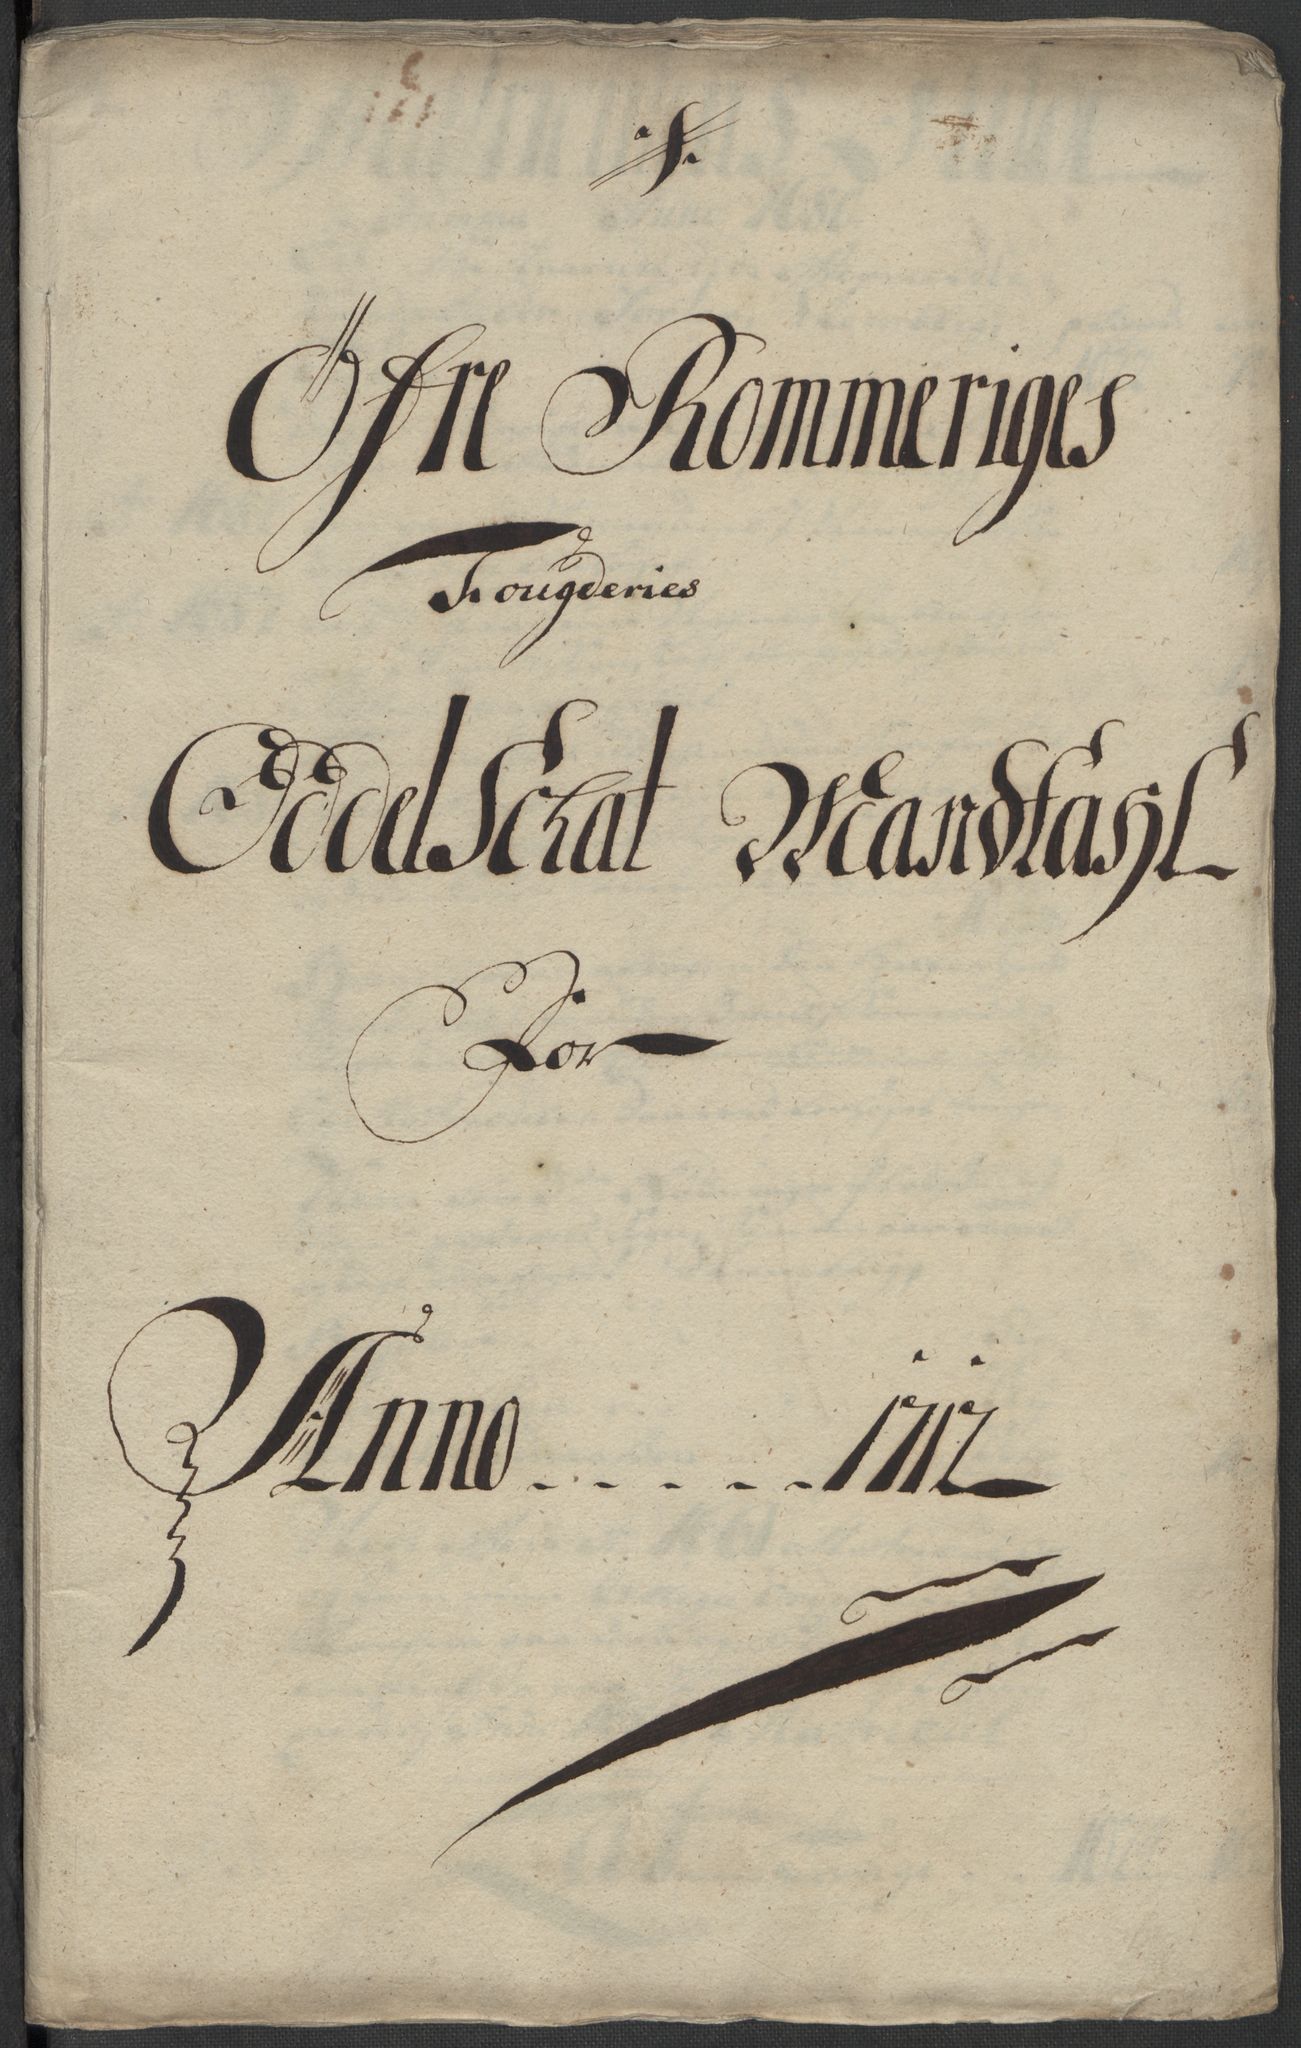 Øfre Rommeriges
Fougderies
Oddel Schat Mandtahl
For
Anno . . . . . 1712